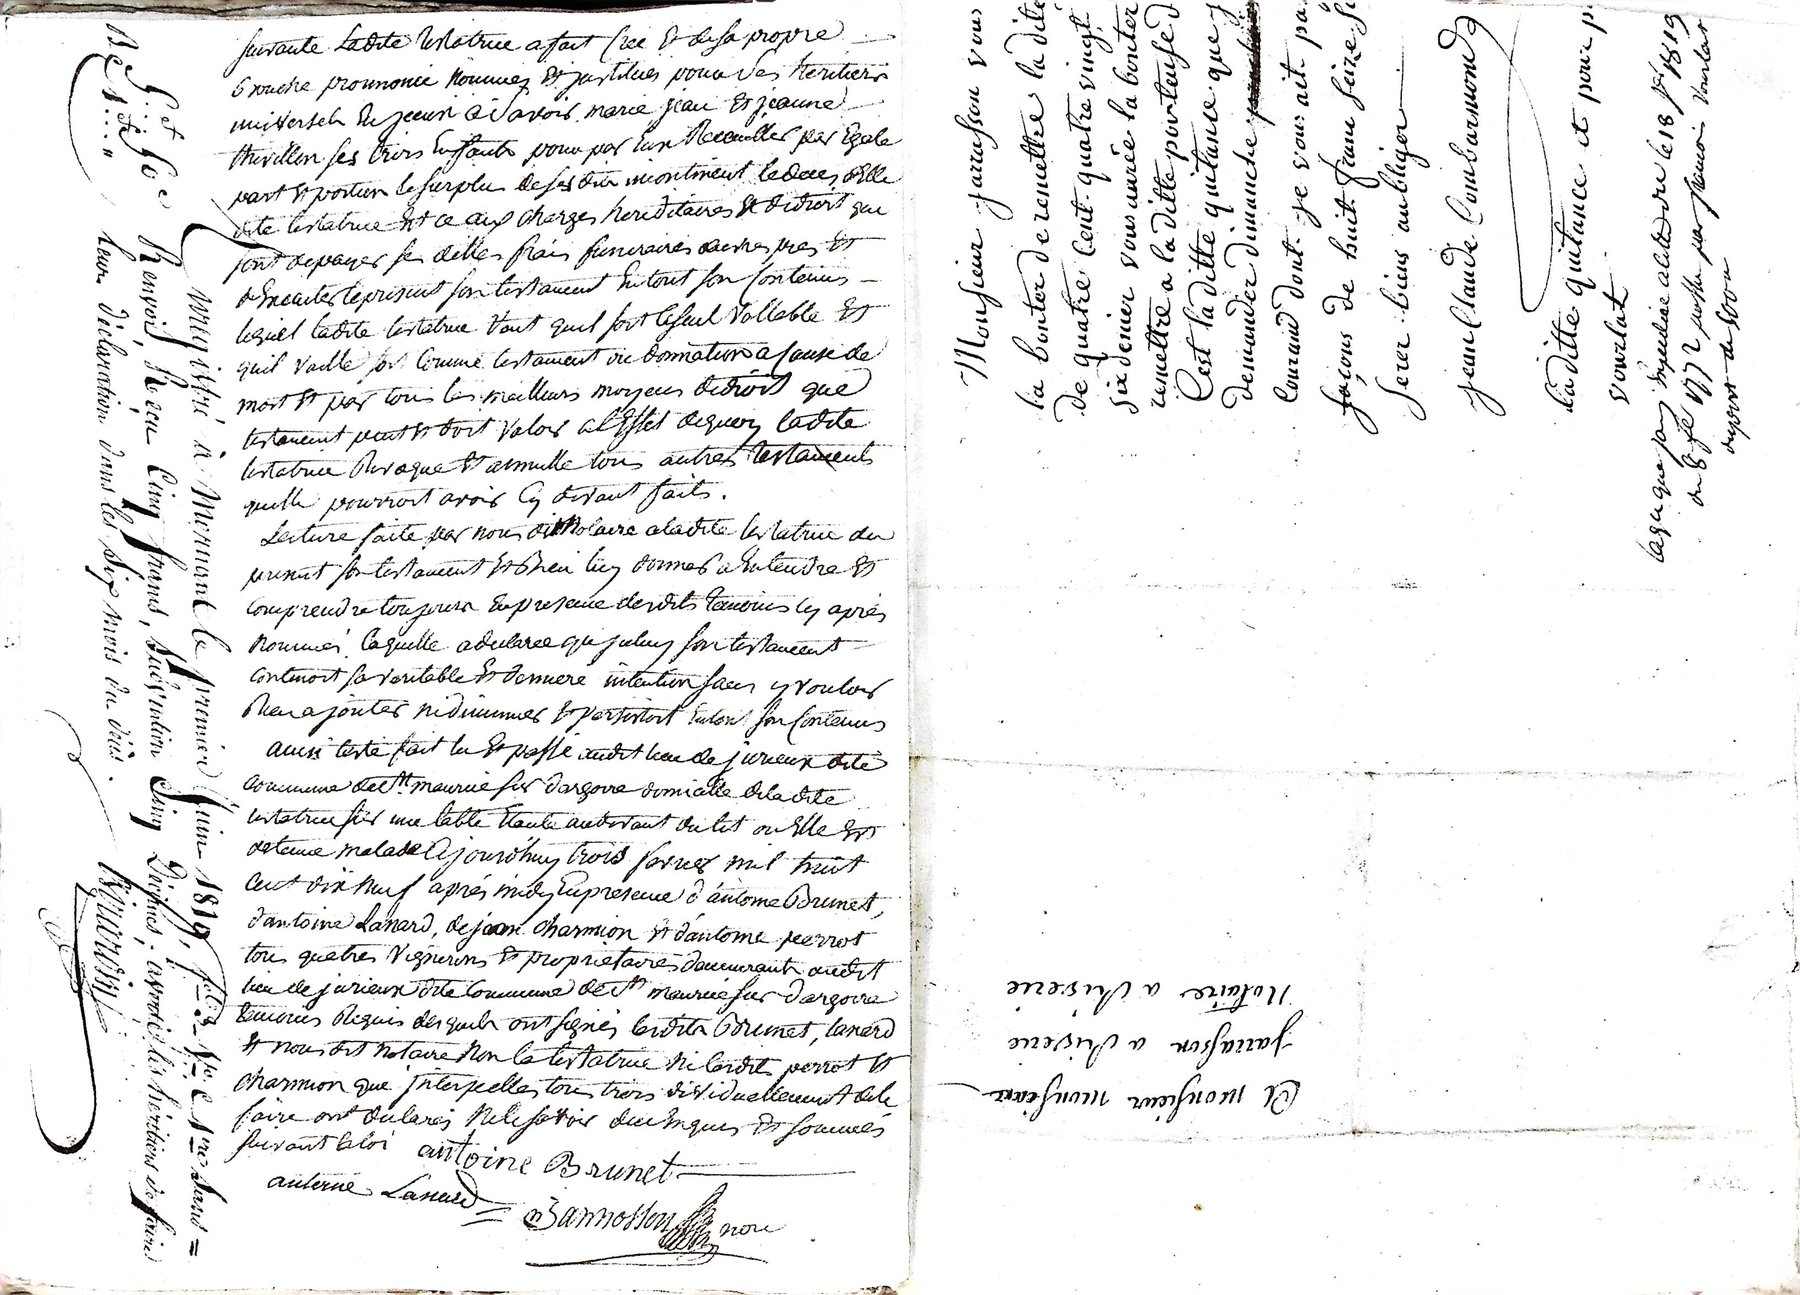 suivante Ladite testatrice a fait Cree et de sa propre
Bouche prononcé Nommés et institués pour ses héritiers
universels En jceux à sçavoir marie jean et jeanne
thivillon ses trois Enfants pour par Eux Recueillir par Egale
part et portion le surplus de ses dits incontinent le deces d'Elle
dite testatrice Et ce aux charges hereditaires et didroit qui
sont de payer ses dettes frais funeraires oeuvres pies et
d'Executer le present son testament En tout son Contenus
lequel ladite testatrice Veut quil soit le seul Vallable et
quil vaille soit Comme testament ou donnation a Cause de
mort et par tous les meilleurs moyens didroit que
testament peut et doit valoir a l'Effet de quoy ladite
testatrice Revoque et annulle tous autres testaments
quelle pourroit avoir Cy devant faits.
Lecture faite par nous dit Notaire a ladite testatrice du
present son testament et Bien luy donner a Entendre et
comprendre toujours En presence desdits temoins Cy après
Nommés. laquelle a declaree qu jceluy son testament
contenoit sa veritable et derniere intention sans y vouloir
Rien ajouter ni diminuer et persistoit En tout son Contenus
ainsi testé fait lu et passé audit lieu de jurieux dite
commune de st. maurice sur dargoire domicille de ladite
testatrice sur une table Etante au devant du lit ou Elle Est
detenue malade Cejourd'huy trois fevrier mil huit
Cent dix Neuf après midy En presence d'antoine Brunet,
d'antoine Lanard, de jean charmion et d'antoine perrot
tous quatres Vignerons et propriétaires demeurants audit
lieu de jurieux dite Commune de st. maurice sur dargoire
temoins Requis desquels ont signés lesdits Brunet, lanard
et nous dit notaire Non la testatrice Ni lesdits perrot et
charmion que jnterpellés tous trois dividuellement de le
faire ont declarés Ne le savoir deux Enquis et sommés
suivant la loi
antoine Brunet
antoine Lanard
Jannosson nore
Enregistré à Mornant le premier Juin 1819, fol.
Renvois, Reçu Cinq francs, subvention Cinq Décimes.
leur déclaration dans les six mois du décès.
Monsieur jarasson vous
la bonter de remettre la dite
de quatre Cent quatre vingt
six denier vous aurée la bonter
remettre a la ditte porteuse d
Cest la ditte quitance que j
demander dimanche
Couraud dont je vous ait pa
façons de huit franc seize s
serer biens aubliger
jean Claude Combarmond
la ditte quitance et pour p
vourlat
du 8 fé 1772
A monsieur monsieur
jarrasson a Riverie
Notaire a Riverie